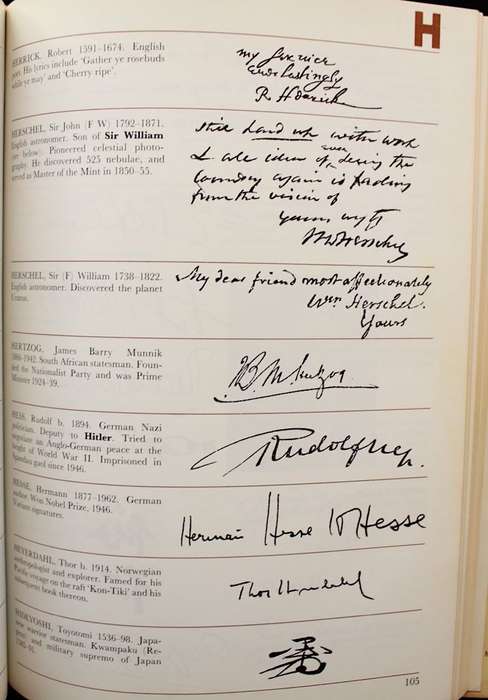 H
HERRICK, Robert 1591–1674. English
poet. His lyrics include 'Gather ye rosebuds
while ye may' and 'Cherry ripe'.
my service
Everlastingly
R Herrick
HERSCHEL, Sir John (F W) 1792–1871.
English astronomer. Son of Sir William
(see below). Pioneered celestial photo-
graphy. He discovered 525 nebulae, and
served as Master of the Mint in 1850–55.
hard up with work
idea of even seeing the
country again is fading
from the vision of
yours
HERSCHEL, Sir (F) William 1738–1822.
English astronomer. Discovered the planet
Uranus.
My dear friend most affectionately
Wm Herschel.
Yours
HERTZOG, James Barry Munnik
1866–1942. South African statesman. Foun-
ded the Nationalist Party and was Prime
Minister 1924–39.
HESS, Rudolf b. 1894. German Nazi
politician. Deputy to Hitler. Tried to
negotiate an Anglo-German peace at the
height of World War II. Imprisoned in
Spandau gaol since 1946.
Rudolf Hess.
HESSE, Hermann 1877–1962. German
author. Won Nobel Prize, 1946.
Variant signatures.
Hermann Hesse H Hesse
HEYERDAHL, Thor b. 1914. Norwegian
anthropologist and explorer. Famed for his
Pacific voyage on the raft 'Kon-Tiki' and his
subsequent book thereon.
Thor Heyerdahl
HIDEYOSHI, Toyotomi 1536–98. Japa-
nese warrior statesman. Kwampaku (Re-
gent) and military supremo of Japan
1585–98.
105